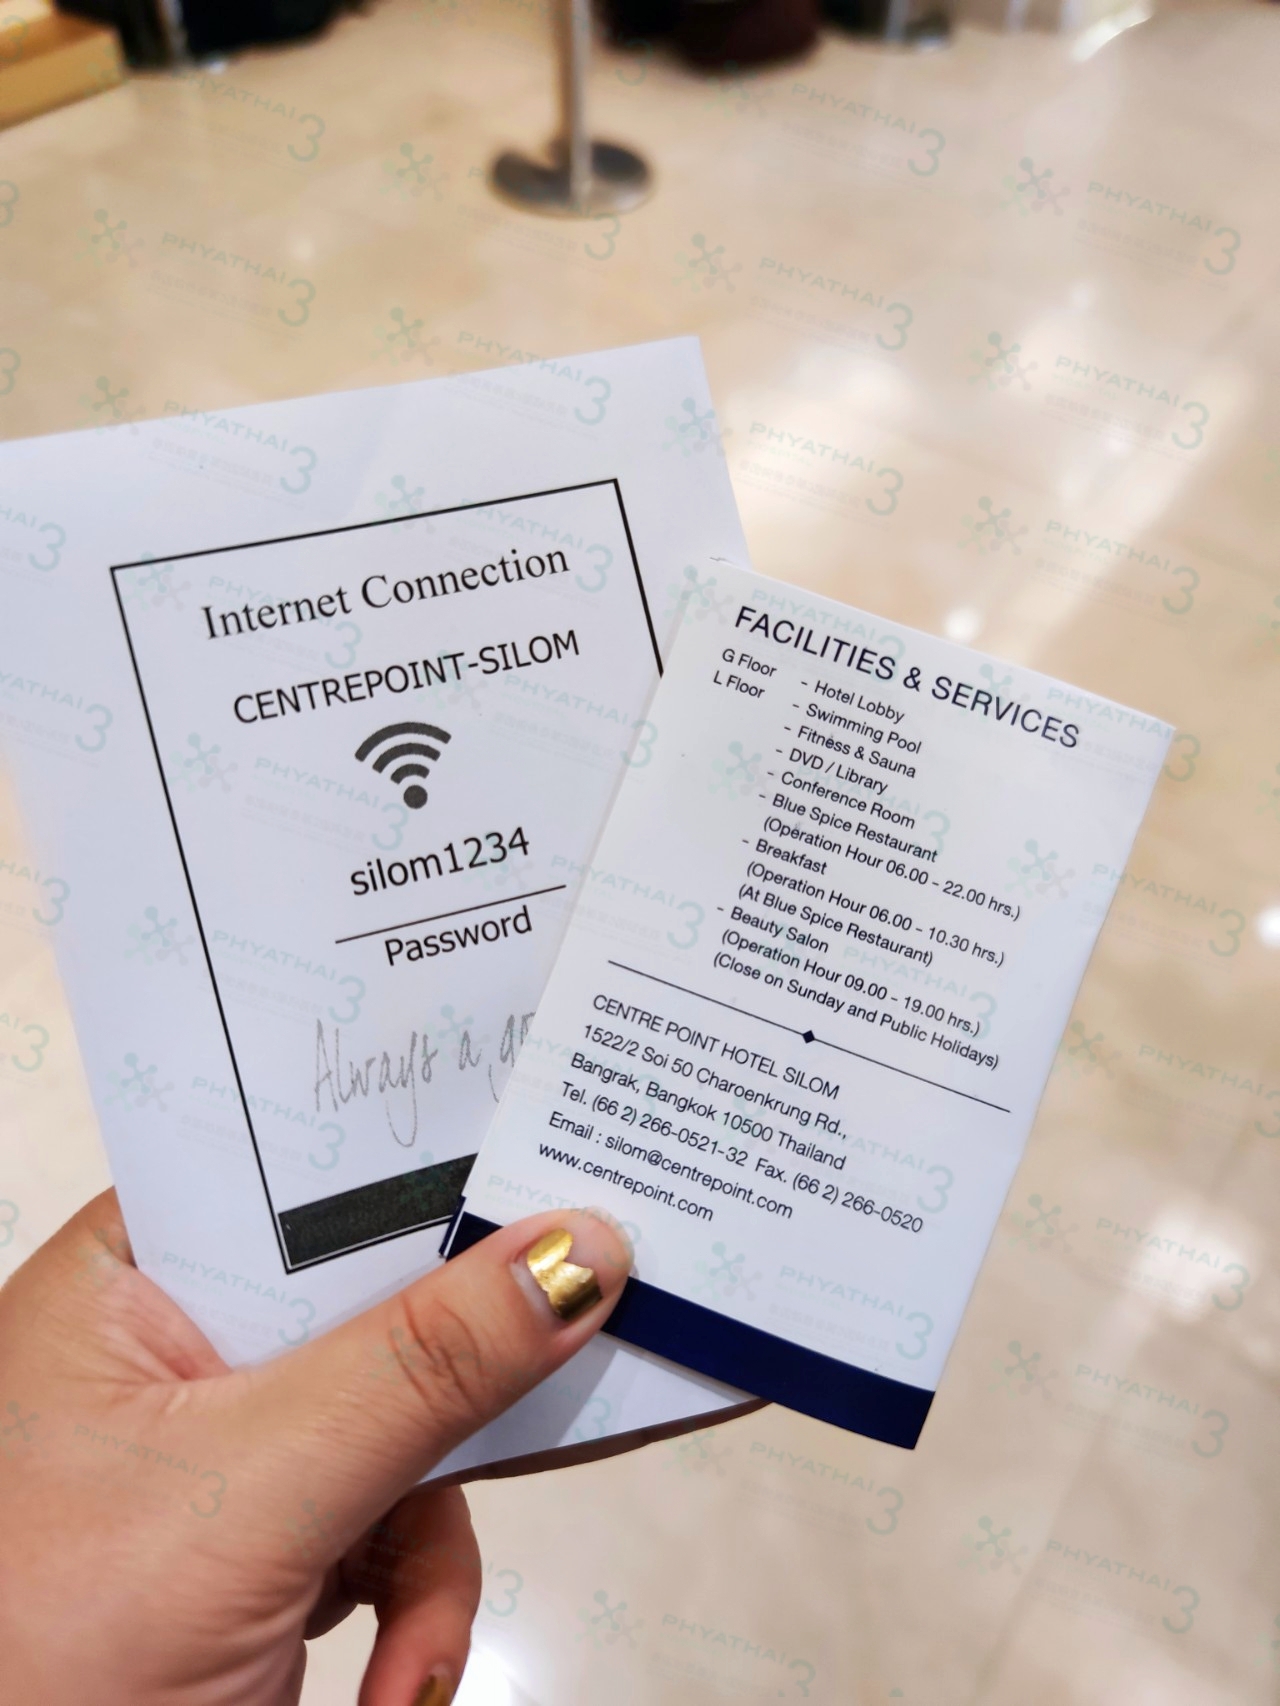 Internet Connection
CENTREPOINT-SILOM
silom1234
Password
Always a
FACILITIES & SERVICES
G Floor - Hotel Lobby
L Floor - Swimming Pool
- Fitness & Sauna
- DVD / Library
- Conference Room
- Blue Spice Restaurant
(Operation Hour 06.00 - 22.00 hrs.)
- Breakfast
(Operation Hour 06.00 - 10.30 hrs.)
(At Blue Spice Restaurant)
- Beauty Salon
(Operation Hour 09.00 - 19.00 hrs.)
(Close on Sunday and Public Holidays)
CENTRE POINT HOTEL SILOM
1522/2 Soi 50 Charoenkrung Rd.,
Bangrak, Bangkok 10500 Thailand
Tel. (66 2) 266-0521-32 Fax. (66 2) 266-0520
Email : silom@centrepoint.com
www.centrepoint.com
PHYATHAI 3